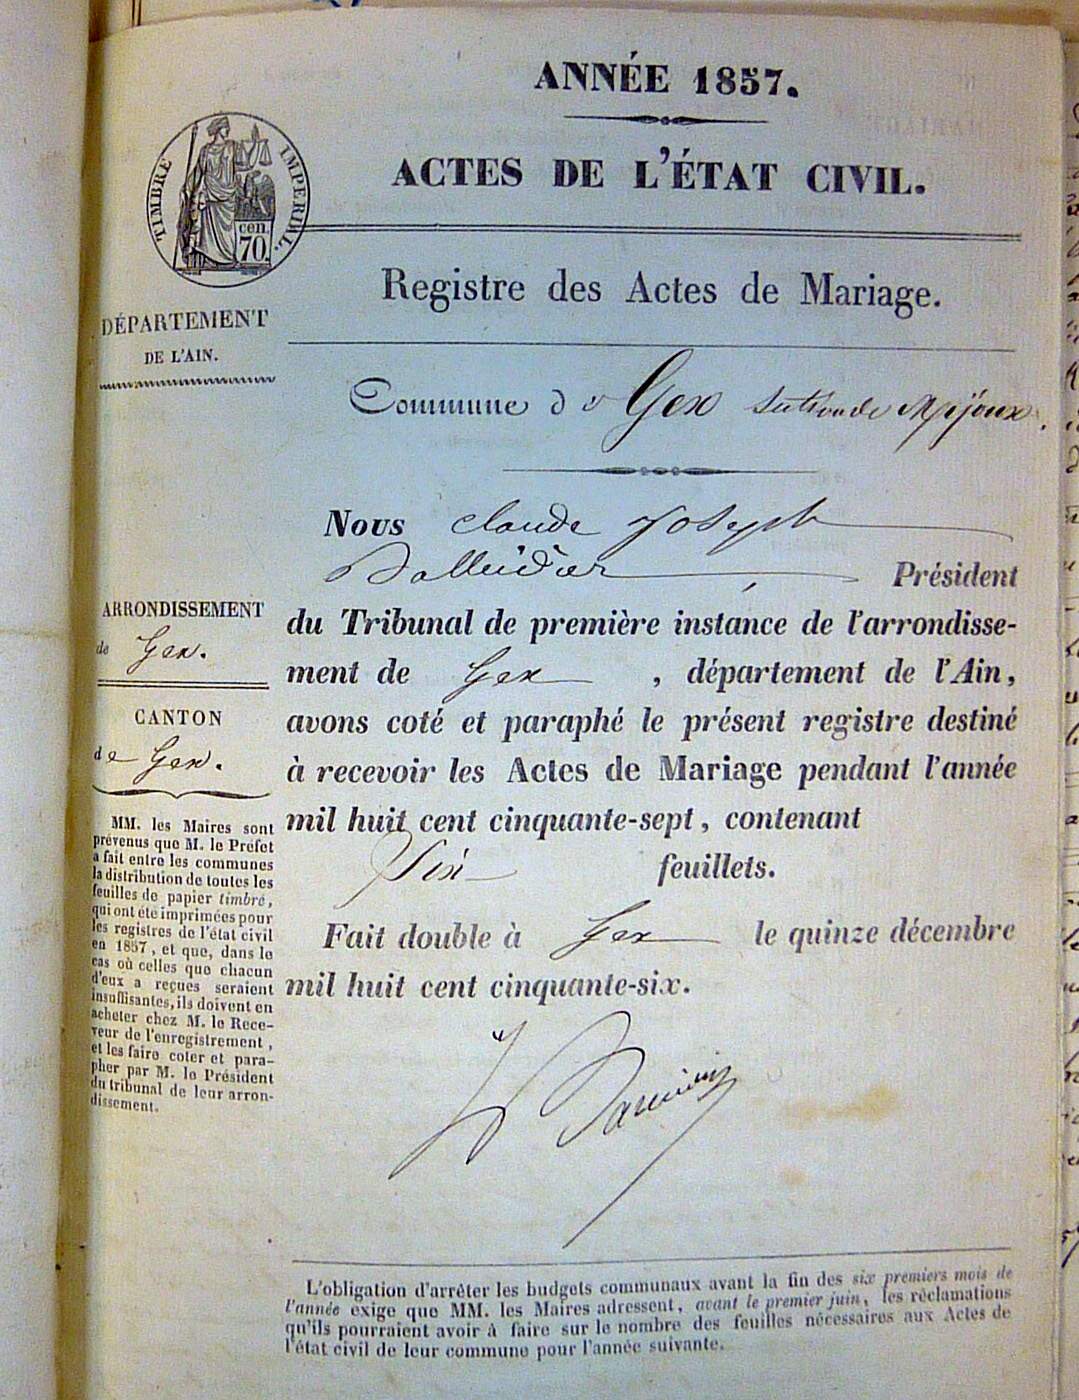 ANNÉE 1857.
ACTES DE L'ÉTAT CIVIL.
TIMBRE IMPERIAL.
cen.
70.
Registre des Actes de Mariage.
DÉPARTEMENT
DE L'AIN.
Commune de Gex section de Mijoux.
Nous Claude Joseph
Président
du Tribunal de première instance de l'arrondisse-
ment de Gex, département de l'Ain,
avons coté et paraphé le présent registre destiné
à recevoir les Actes de Mariage pendant l'année
mil huit cent cinquante-sept, contenant
Six feuillets.
Fait double à Gex le quinze décembre
mil huit cent cinquante-six.
ARRONDISSEMENT
de Gex.
CANTON
de Gex.
MM. les Maires sont
prévenus que M. le Préfet
a fait entre les communes
la distribution de toutes les
feuilles de papier timbré,
qui ont été imprimées pour
les registres de l'état civil
en 1857, et que, dans le
cas où celles que chacun
d'eux a reçues seraient
insuffisantes, ils doivent en
acheter chez M. le Rece-
veur de l'enregistrement,
et les faire coter et para-
pher par M. le Président
du tribunal de leur arron-
dissement.
L'obligation d'arrêter les budgets communaux avant la fin des six premiers mois de
l'année exige que MM. les Maires adressent, avant le premier juin, les réclamations
qu'ils pourraient avoir à faire sur le nombre des feuilles nécessaires aux Actes de
l'état civil de leur commune pour l'année suivante.